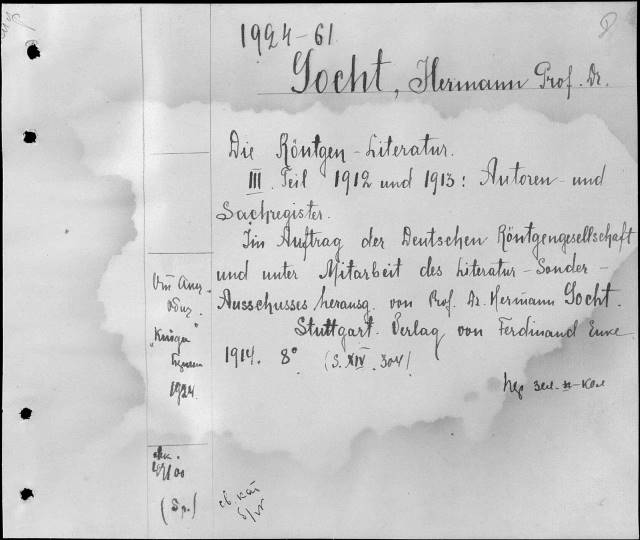 1924-61
Gocht, Hermann Prof. Dr.
Die Röntgen-Literatur.
III. Teil 1912 und 1913: Autoren- und
Sachregister.
Im Auftrag der Deutschen Röntgengesellschaft
und unter Mitarbeit des Literatur-Sonder-
Ausschusses herausg. von Prof. Dr. Hermann Gocht.
Stuttgart. Verlag von Ferdinand Enke
1914. 8° (S. XIV. 304)
"Книга"
1924.